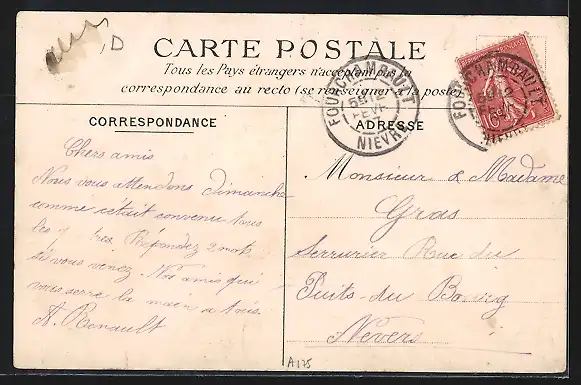 D
CARTE POSTALE
Tous les Pays étrangers n'acceptent pas la
correspondance au recto (se renseigner à la poste)
CORRESPONDANCE
ADRESSE
FOURCHAMBAULT
5E 12
FEVR
NIEVRE
FOURCHAMBAULT
NIEVRE
10c
Chers amis
Nous vous attendons Dimanche
comme c'était convenu tous
les Répondez 2 mots
si vous venez. Nos amis qui
vous serre la main a tous.
A. Renault
Monsieur & Madame
Gras
Serrurier Rue du
Puits-du Bourg
Nevers
A175